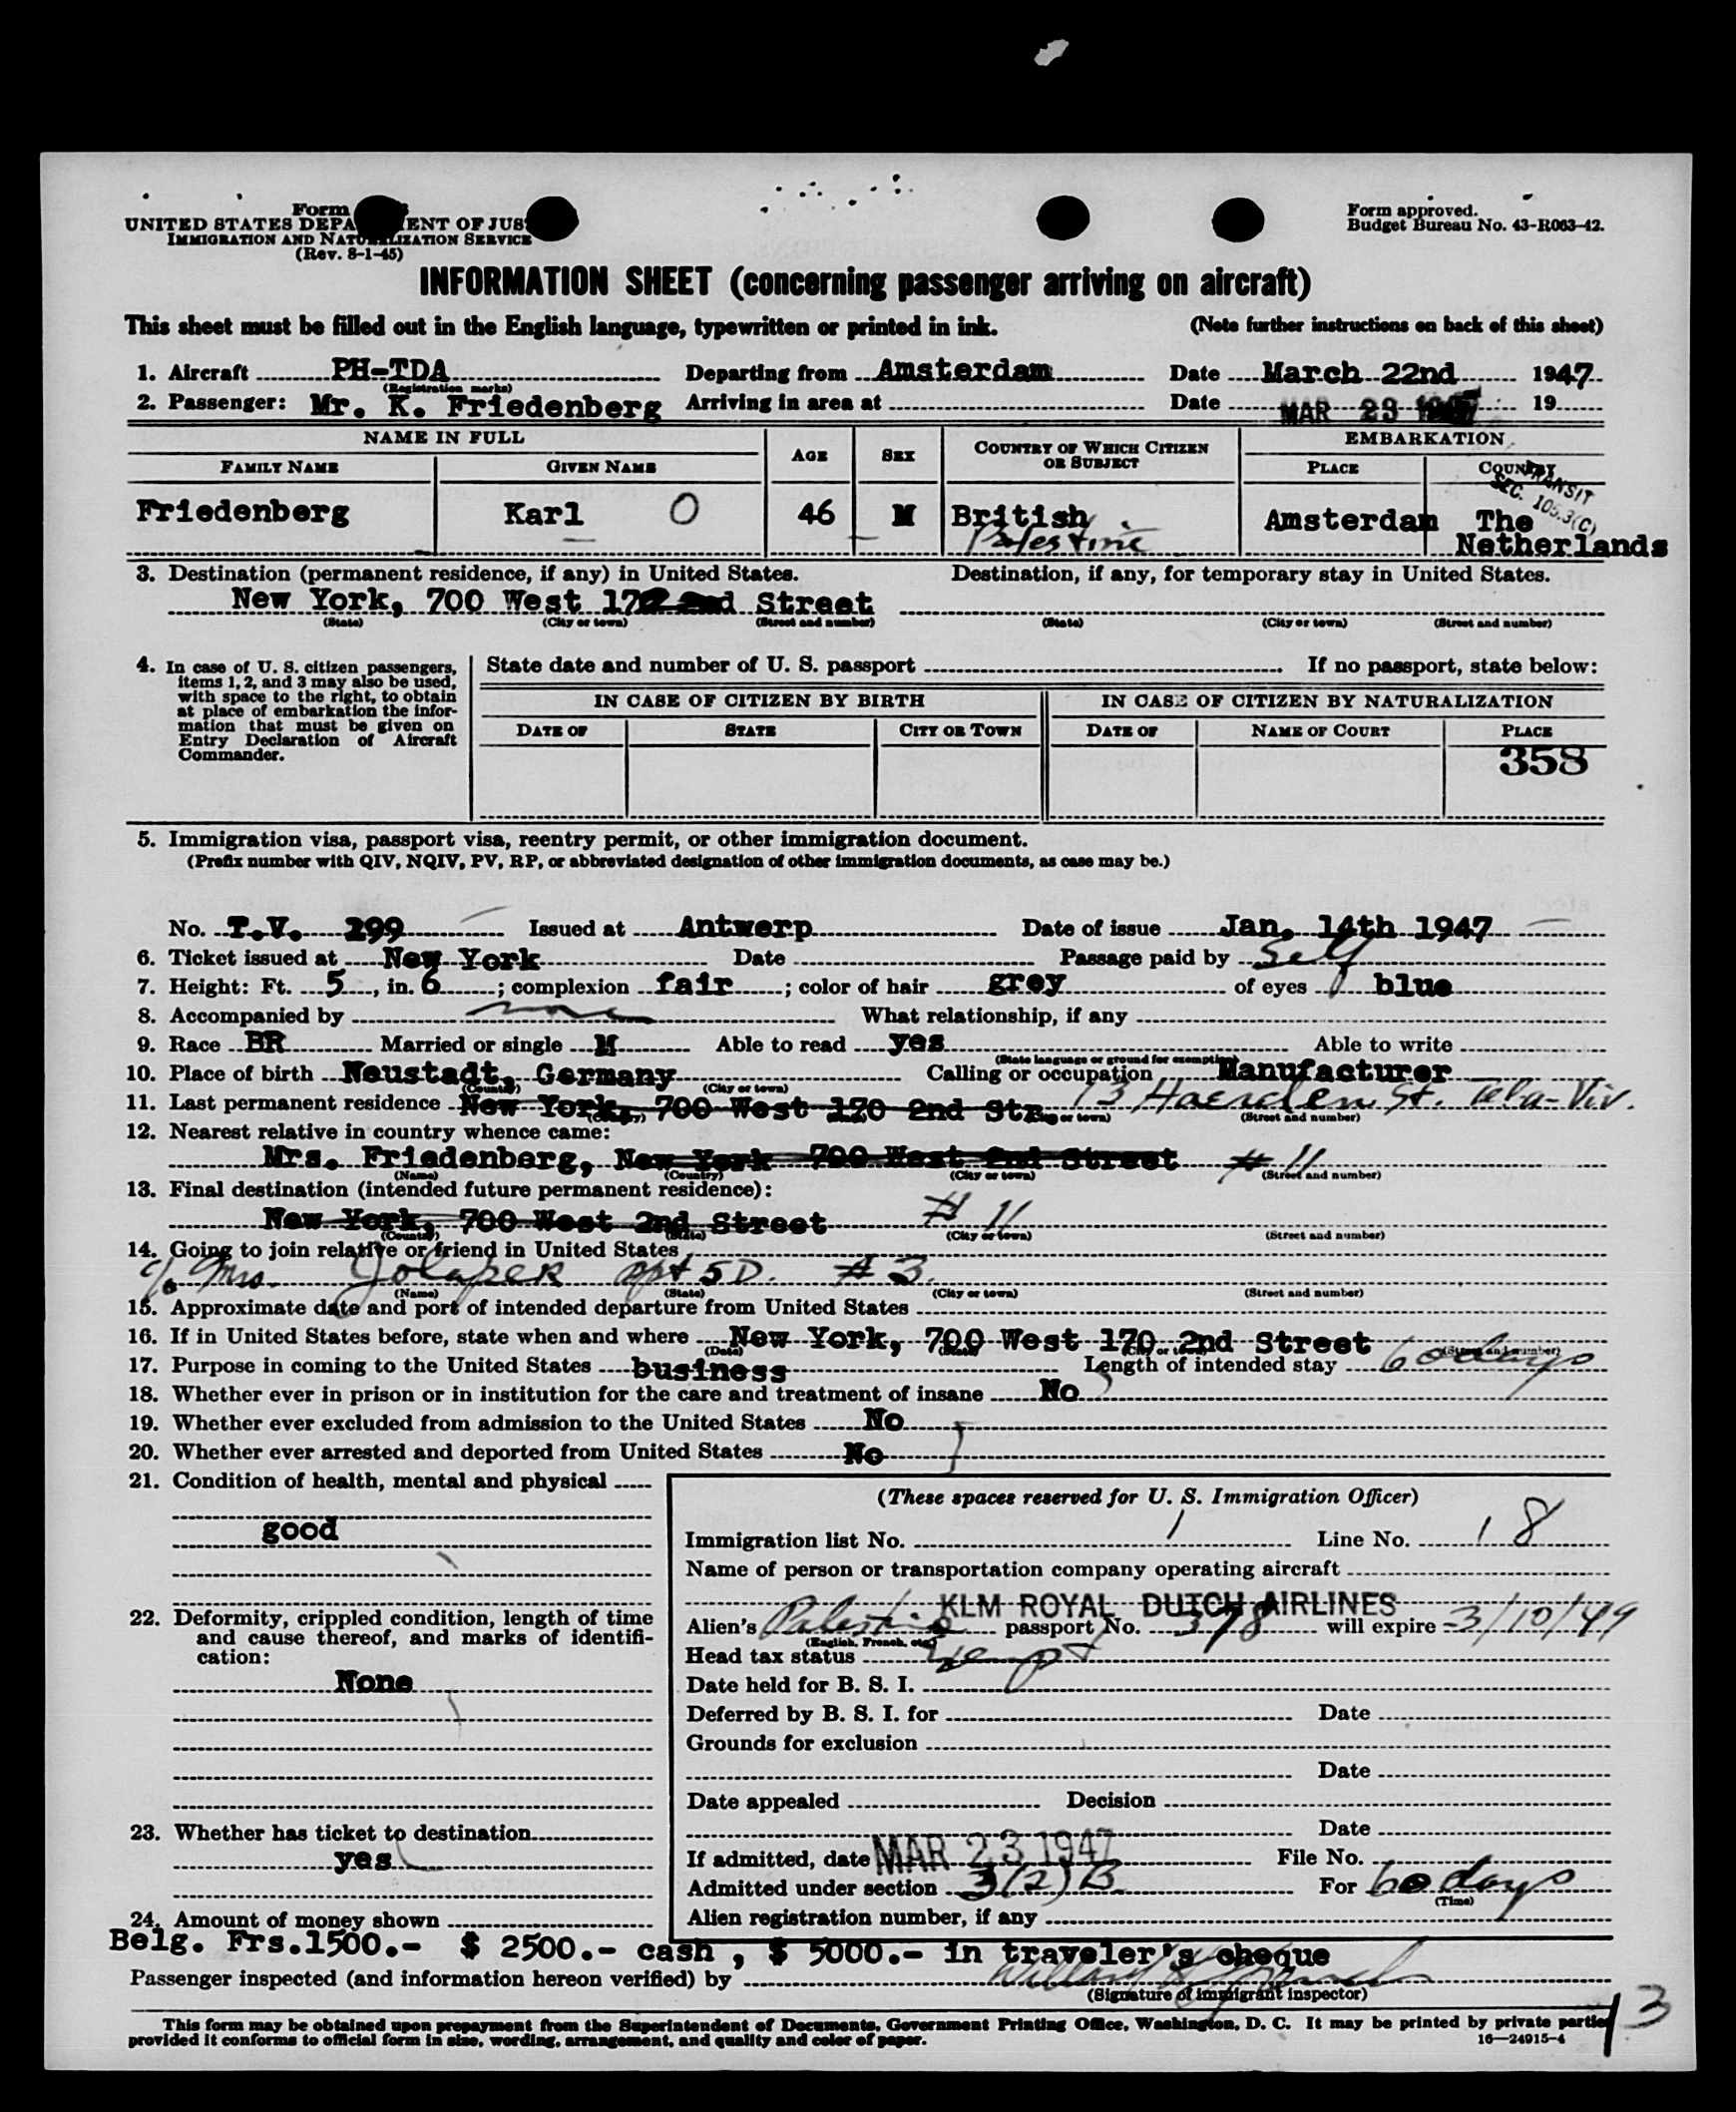 Form
UNITED STATES DEPA ENT OF JUS
IMMIGRATION AND NATURALIZATION SERVICE
(Rev. 8-1-45)
Form approved.
Budget Bureau No. 43-R063-42.
INFORMATION SHEET (concerning passenger arriving on aircraft)
This sheet must be filled out in the English language, typewritten or printed in ink. (Note further instructions on back of this sheet)
1. Aircraft PH-TDA Departing from Amsterdam Date March 22nd 1947
(Registration marks)
2. Passenger: Mr. K. Friedenberg Arriving in area at Date MAR 23 1947 19
NAME IN FULL AGE SEX COUNTRY OF WHICH CITIZEN OR SUBJECT EMBARKATION
FAMILY NAME GIVEN NAME PLACE COUNTRY
TRANSIT
SEC. 105.3(C)
Friedenberg Karl O 46 M British Amsterdam The Netherlands
Palestine
3. Destination (permanent residence, if any) in United States. Destination, if any, for temporary stay in United States.
New York, 700 West 17 Street
(State) (City or town) (Street and number) (State) (City or town) (Street and number)
4. In case of U. S. citizen passengers, items 1, 2, and 3 may also be used, with space to the right, to obtain at place of embarkation the information that must be given on Entry Declaration of Aircraft Commander.
State date and number of U. S. passport If no passport, state below:
IN CASE OF CITIZEN BY BIRTH IN CASE OF CITIZEN BY NATURALIZATION
DATE OF STATE CITY OR TOWN DATE OF NAME OF COURT PLACE
358
5. Immigration visa, passport visa, reentry permit, or other immigration document.
(Prefix number with QIV, NQIV, PV, RP, or abbreviated designation of other immigration documents, as case may be.)
No. T.V. 299 Issued at Antwerp Date of issue Jan. 14th 1947
6. Ticket issued at New York Date Passage paid by Self
7. Height: Ft. 5, in. 6; complexion fair; color of hair grey of eyes blue
8. Accompanied by none What relationship, if any
9. Race BR Married or single M Able to read yes Able to write
(State language or ground for exemption)
10. Place of birth Neustadt, Germany Calling or occupation Manufacturer
(Country) (City or town)
11. Last permanent residence New York, 700 West 170 2nd Str. 13 St. Tela-Viv.
(Country) (City or town) (Street and number)
12. Nearest relative in country whence came:
Mrs. Friedenberg, New York 700 West 2nd Street # 11
(Name) (Country) (City or town) (Street and number)
13. Final destination (intended future permanent residence):
New York, 700 West 2nd Street # 11
(Country) (State) (City or town) (Street and number)
14. Going to join relative or friend in United States
c/o Mrs. apt 5D. # 3.
(Name) (State) (City or town) (Street and number)
15. Approximate date and port of intended departure from United States
16. If in United States before, state when and where New York, 700 West 170 2nd Street
(Date) (State) (City or town) (Street and number)
17. Purpose in coming to the United States business Length of intended stay 60 days
18. Whether ever in prison or in institution for the care and treatment of insane No
19. Whether ever excluded from admission to the United States No
20. Whether ever arrested and deported from United States No
21. Condition of health, mental and physical
good
22. Deformity, crippled condition, length of time and cause thereof, and marks of identification:
None
23. Whether has ticket to destination
yes
24. Amount of money shown
Belg. Frs.1500.- $ 2500.- cash , $ 5000.- in traveler's cheque
(These spaces reserved for U. S. Immigration Officer)
Immigration list No. 1 Line No. 18
Name of person or transportation company operating aircraft
KLM ROYAL DUTCH AIRLINES
Alien's Palestine passport No. 378 will expire 3/10/49
(English, French, etc.)
Head tax status Exempt
Date held for B. S. I.
Deferred by B. S. I. for Date
Grounds for exclusion
Date
Date appealed Decision
Date
If admitted, date MAR 23 1947 File No.
Admitted under section 3(2)B For 60 days
(Time)
Alien registration number, if any
Passenger inspected (and information hereon verified) by
(Signature of immigrant inspector)
13
This form may be obtained upon prepayment from the Superintendent of Documents, Government Printing Office, Washington, D. C. It may be printed by private parties
provided it conforms to official form in size, wording, arrangement, and quality and color of paper. 16—24915-4